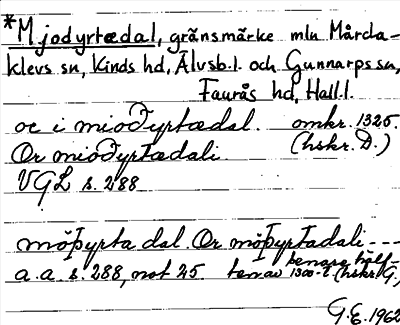 *Mjodyrtædal, gränsmärke mln Mårda-
klevs sn, Kinds hd, Älvsb.l. och Gunnarps sn,
Faurås hd, Hall.l.
oc i mioðyrtædal. omkr. 1325.
Or mioðyrtædali (hskr. D.)
VGL s. 288
möþyrta dal. Or möþyrtadali ---
a.a. s. 288, not 25 senare hälf-
ten av 1300-t. (hskr. G,
G.E. 1962